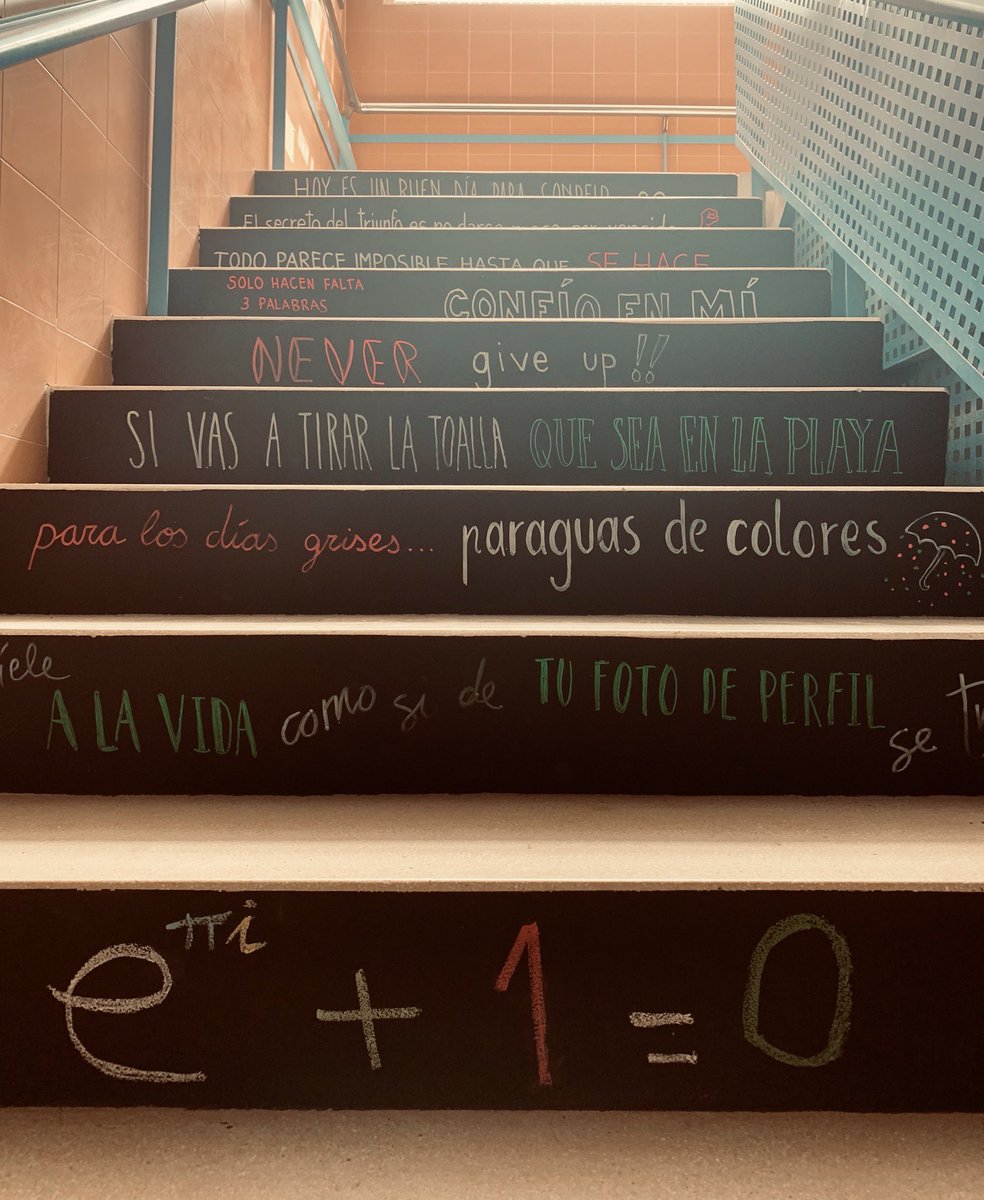 HOY ES UN BUEN DÍA PARA
El secreto del triunfo es no darse
TODO PARECE IMPOSIBLE HASTA QUE SE HACE
SOLO HACEN FALTA
3 PALABRAS
CONFÍO EN MÍ
NEVER give up!!
SI VAS A TIRAR LA TOALLA QUE SEA EN LA PLAYA
para los días grises... paraguas de colores
A LA VIDA como si de TU FOTO DE PERFIL se
e^{πi} + 1 = 0